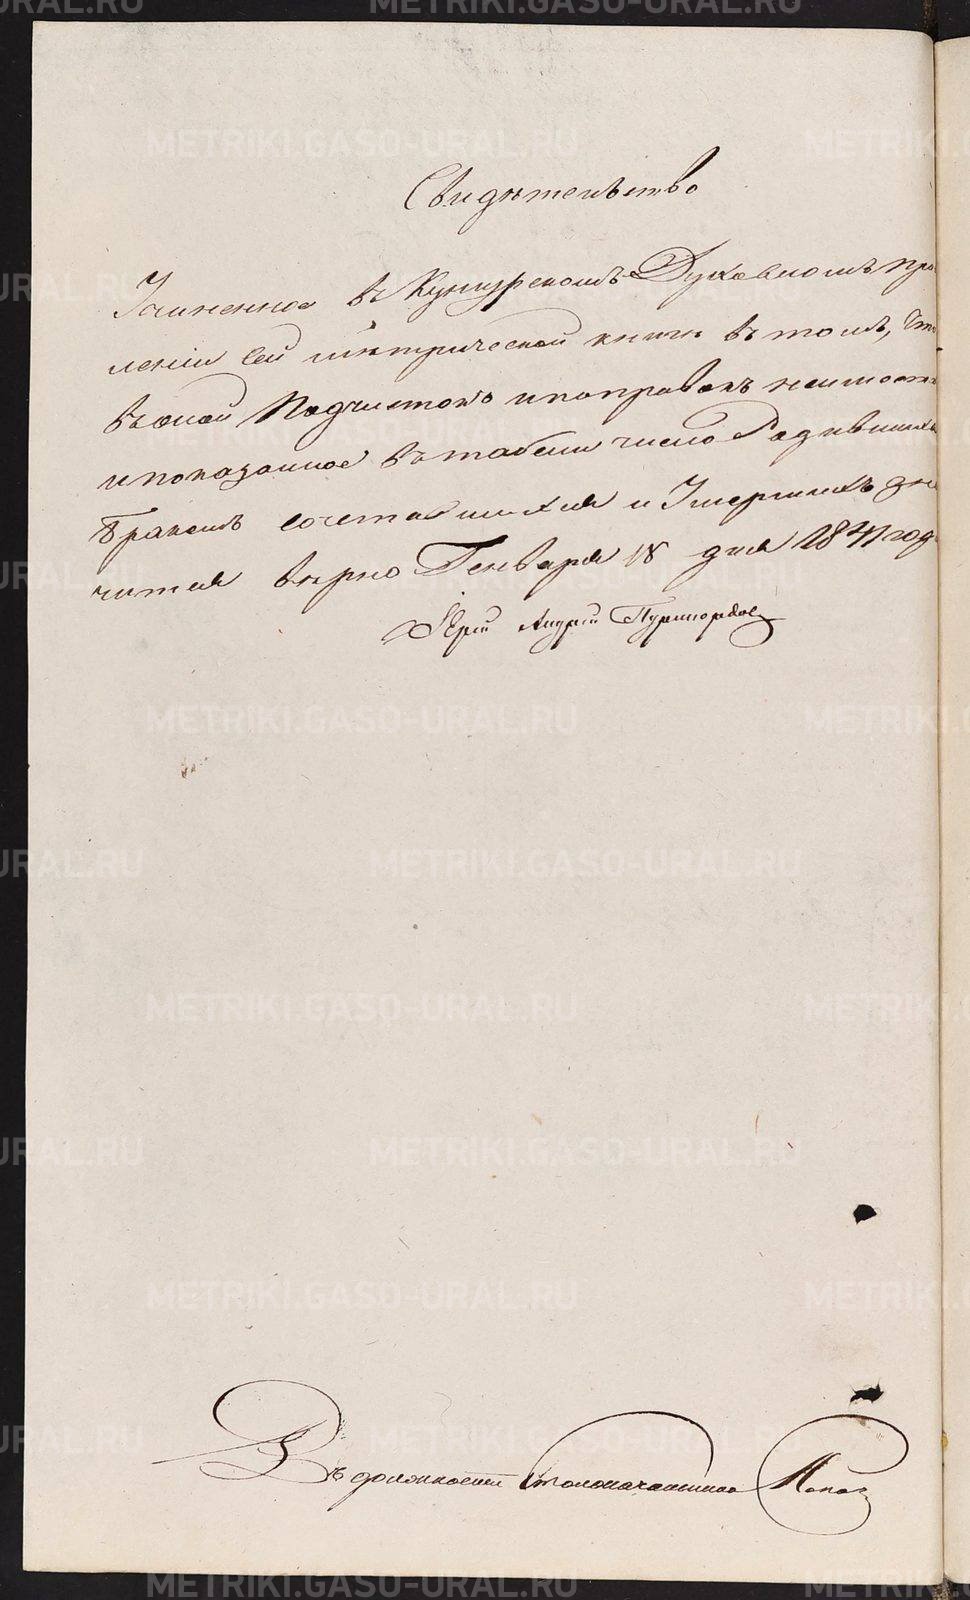 Свидѣтельство
Учиненное въ Кунгурскомъ Духовномъ пра
вленіи сей метрической книги въ томъ, что
въ оной подчистокъ и поправокъ неимеется
и показанное въ табели число Родившихся
браком сочетавшихся и Умершихъ зна
чится вѣрно Генваря 18 дня 1841 года
Іерей Андрей
Въ должности Столоначальника Попов
METRIKI.GASO-URAL.RU